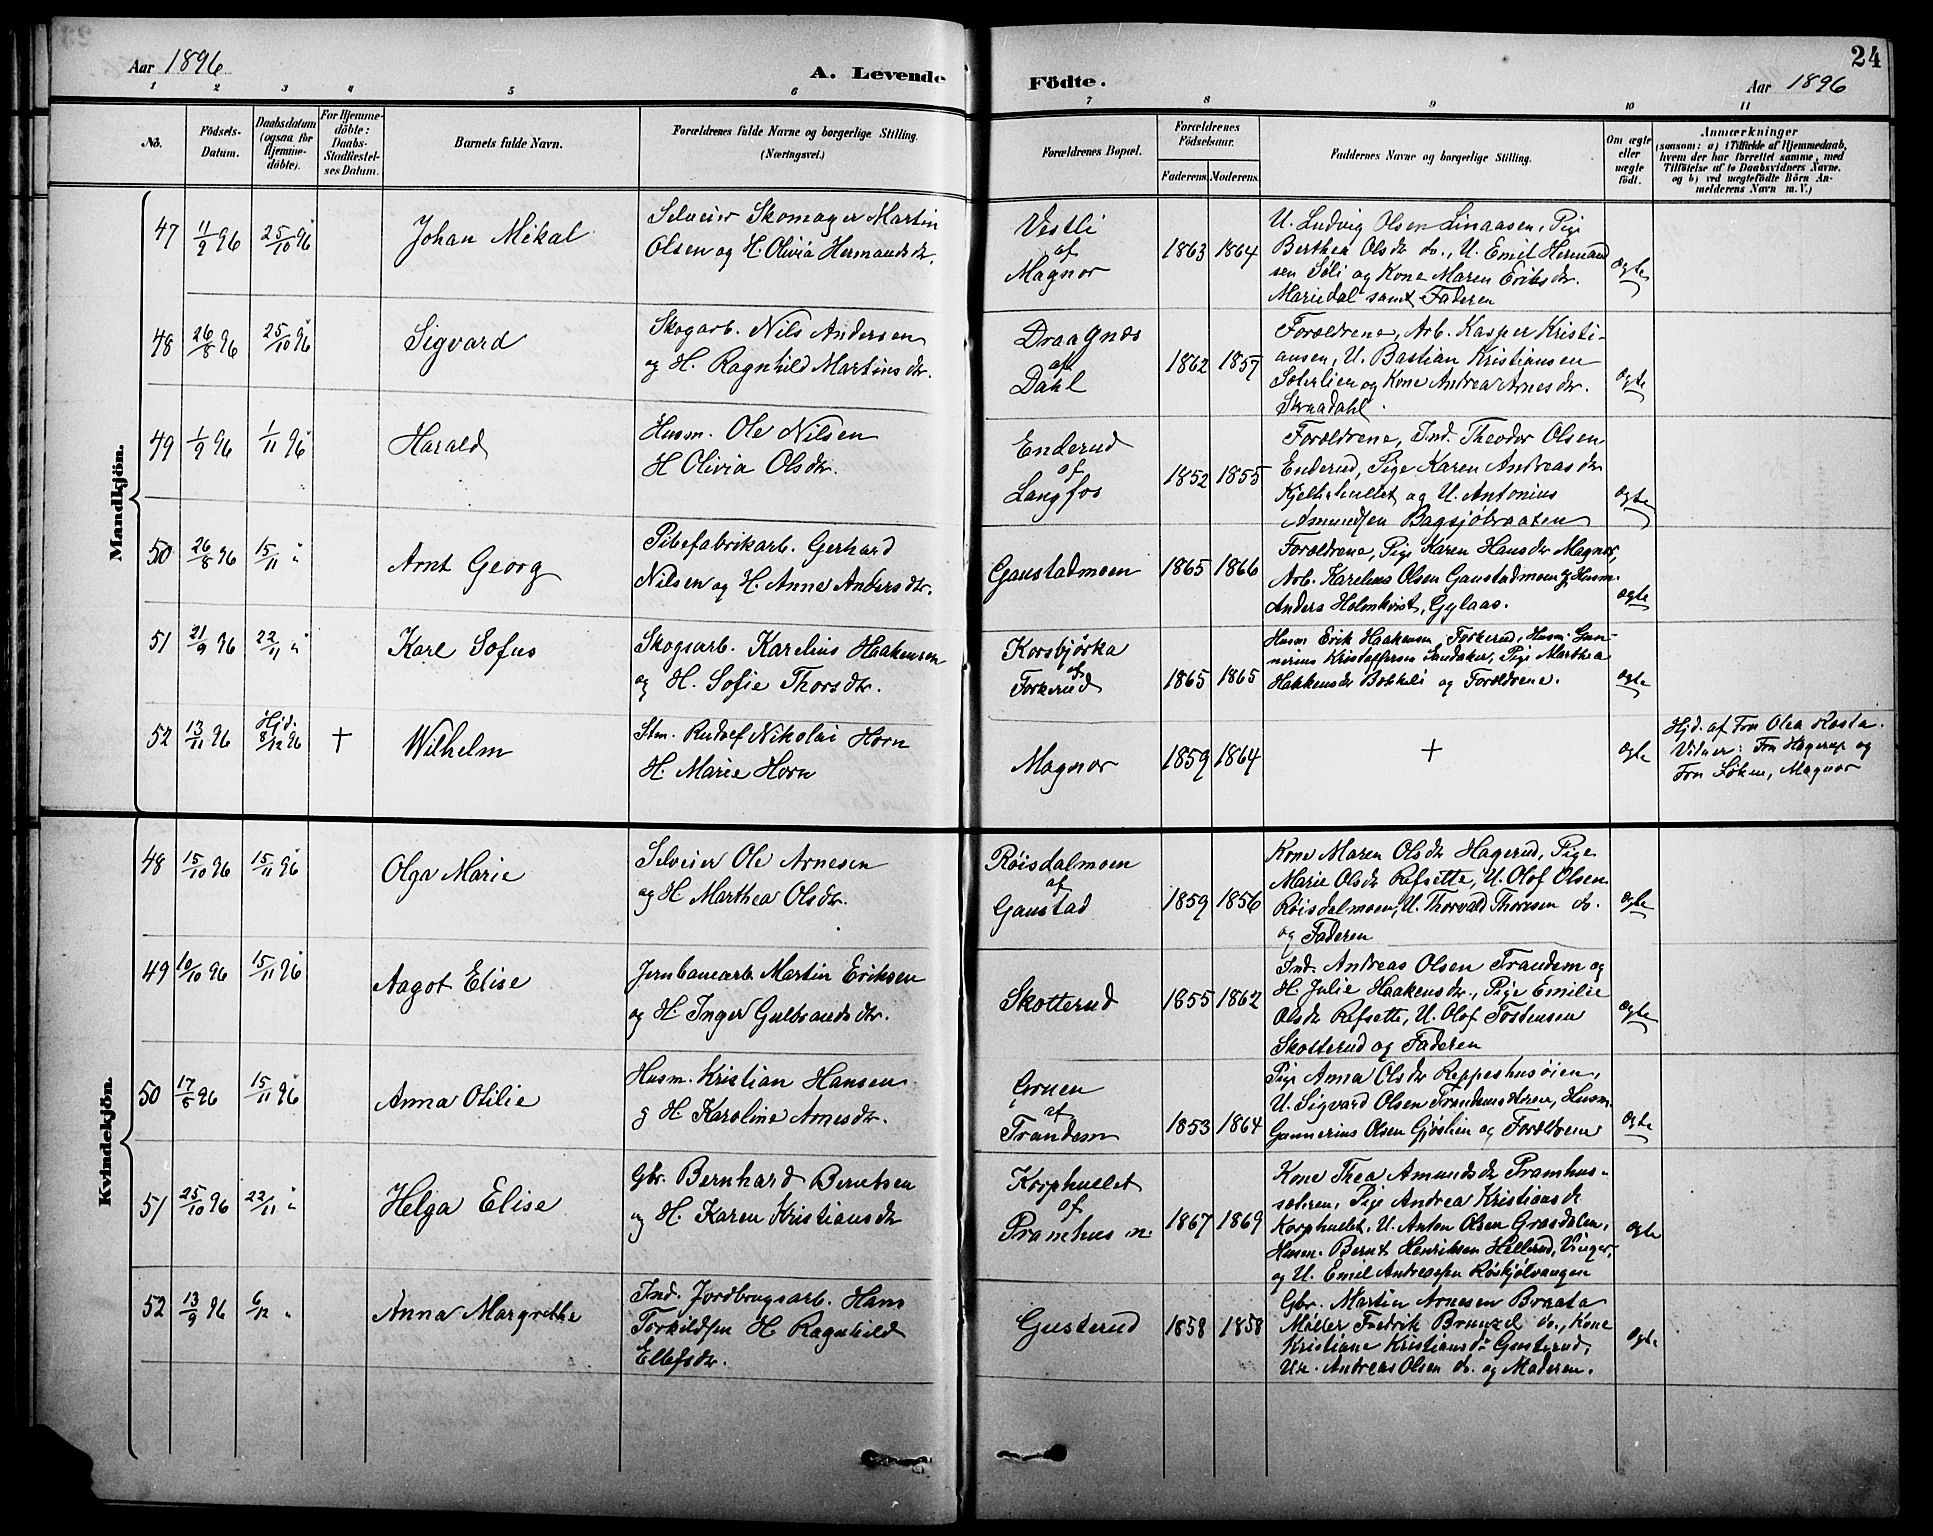 Aar 1896
A. Levende Födte.
24
Aar 1896
1 2 3 4 5 6 7 8 9 10 11
No.
Födsels-Datum.
Daabsdatum (ogsaa for Hjemme-döbte).
For Hjemme-döbte: Daabs-Stadfæstel-ses Datum.
Barnets fulde Navn.
Forældrenes fulde Navne og borgerlige Stilling.
(Næringsvei.)
Forældrenes Bopæl.
Forældrenes Födselsaar.
Faderens. Moderens.
Faddernes Navne og borgerlige Stilling.
Om ægte eller uægte født.
Anmærkninger
(saasom: a) i Tilfælde af Hjemmedaab,
hvem der har forrettet samme, med
Tilföielse af to Daabsvidners Navne.
og b) ved uægtefödte Börn An-
melderens Navn m. V.)
Mandkjön.
47 11/9 96 25/10 96
Johan Mikal
Selveier Skomager Martin
Olsen og H. Olivia Hermansdr.
Vestli
af
Magnor
1863 1864
U. Ludvig Olsen Linaasen, Pige
Berthea Olsdr do., U. Emil Hermand
sen Søli og Kone Maren Eriksdr.
Mariedal samt Faderen
ægte
48 26/8 96 25/10 96
Sigvard
Skogarb. Nils Andersen
og H. Ragnhild Martinsdr.
Draagnæs
af
Dahl
1862 1857
Forældrene, Arb. Kasper Kristi-
ansen, U. Bastian Kristiansen
Sæterlien og Kone Andrea Arnesdr.
Skraadahl.
ægte
49 1/9 96 1/11 96
Harald
Husm. Ole Nilsen
H Olivia Olsdr.
Enderud
af
Langfos
1852 1855
Forældrene, Ind. Theodor Olsen
Enderud, Pige Karen Andreasdr
og U. Antonius
Amundsen Bagsjøbraaten
ægte
50 26/8 96 15/11 "
Arnt Georg
Pibefabrikarb. Gerhard
Nilsen og H. Anna Andersdr.
Gaustadmoen
1865 1866
Forældrene, Pige Karen Hansdr Magnor,
Arb. Karelius Olsen Gaustadmoen og Husm.
Anders Holmkvist, Gylaas.
ægte
51 21/9 96 22/11 "
Karl Sofus
Skogsarb. Karelius Haakensen
og H. Sofie Thorsdr.
Korsbjørka
af
Torkerud
1865 1865
Husm Erik Haakensen Torkerud, Husm. Gun-
nerius Kristoffersen Sandaker, Pige Marthea
Hakkensdr Bekkeli og Forældrene.
ægte
52 13/11 96 Hjd. 8/12 96 +
Wilhelm
Stm. Rudolf Nikolai Horn
H. Marie Horn
Magnor
1859 1864
+
ægte
Hjd. af Fru Olea Rasta.
Vidner: Fru Hagerup og
Fru Løken, Magnor
Kvindekjön.
48 15/10 96 15/11 96
Olga Marie
Selveier Ole Arnesen
og H Marthea Olsdr.
Røisdalmoen
af
Gaustad
1859 1856
Kone Maren Olsdr Hagerud, Pige
Marie Olsdr Refsette, U. Olof Olsen
Røisdalmoen, U. Thorvald Thoresen do.
og Faderen
ægte
49 10/10 96 15/11 96
Aagot Elise
Jernbanearb Martin Eriksen
og H. Inger Gulbrandsdr.
Skotterud
1855 1862
Ind. Andreas Olsen Trandem og
H. Julie Haakensdr., Pige Emilie
Olsdr Refsette, U. Olof Tostensen
Skotterud og Faderen
ægte
50 17/8 96 15/11 96
Anna Otilie
Husm. Kristian Hansen
og H Karoline Arnesdr.
Gruen
af
Trandem
1853 1864
Pige Anna Olsdr Reppeshusøien,
U. Sigvard Olsen Trandemsæteren, Husm.
Gunnerius Olsen Gjøslien og Forældrene
ægte
51 25/10 96 22/11 "
Helga Elise
Gbr. Bernhard Berntsen
og H. Karen Kristiansdr
Korphullet
af
Pramhus n.
1867 1869
Kone Thea Amundsdr Pramhus-
sæteren, Pige Andrea Kristiansdr
Korphullet, U. Anton Olsen Grasdalen,
Husm. Bernt Henriksen Hellerud, Vinger,
og U. Emil Andreassen
ægte
52 13/9 96 6/12 "
Anna Margrethe
Ind. Jordbrugsarb. Hans
Torkildsen H Ragnhild
Ellefsdr.
Gusterud
1858 1858
Gbr. Martin Arnesen Braata
Møller Fredrik do., Kone
Kristiane Kristiansdr Gusterud,
Andreas Olsen do. og Moderen.
ægte